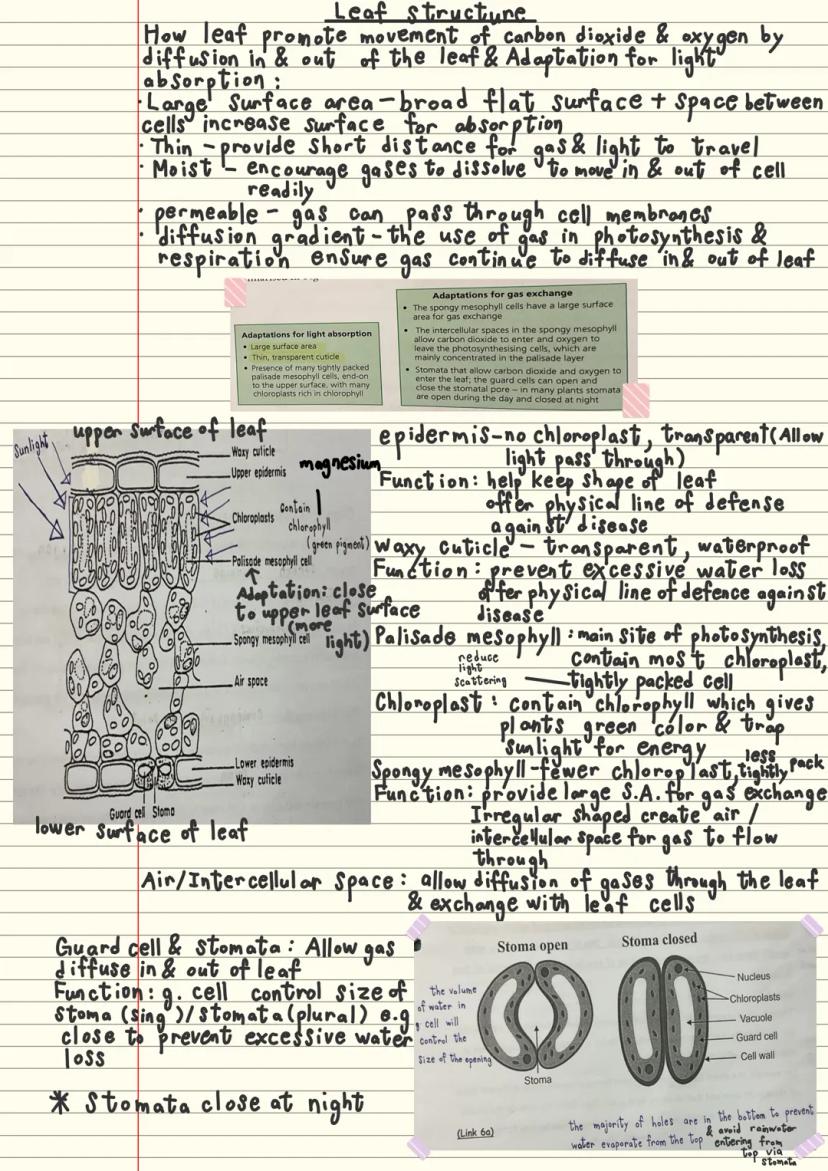 Leaf structure
How leaf promote movement of carbon dioxide & oxygen by
diffusion in & out of the leaf & Adaptation for light
absorption :
· Large surface area – broad flat surface + space between
cells increase surface for absorption
· Thin – provide short distance for gas & light to travel
· Moist – encourage gases to dissolve to move in & out of cell
readily
· permeable – gas can pass through cell membranes
· diffusion gradient – the use of gas in photosynthesis &
respiration ensure gas continue to diffuse in & out of leaf
Adaptations for light absorption
• Large surface area
• Thin, transparent cuticle
• Presence of many tightly packed
palisade mesophyll cells, end-on
to the upper surface, with many
chloroplasts rich in chlorophyll
Adaptations for gas exchange
• The spongy mesophyll cells have a large surface
area for gas exchange
• The intercellular spaces in the spongy mesophyll
allow carbon dioxide to enter and oxygen to
leave the photosynthesising cells, which are
mainly concentrated in the palisade layer
• Stomata that allow carbon dioxide and oxygen to
enter the leaf; the guard cells can open and
close the stomatal pore – in many plants stomata
are open during the day and closed at night
upper surface of leaf
Sunlight
Waxy cuticle
Upper epidermis
magnesium
Chloroplasts
contain
chlorophyll
(green pigment)
Palisade mesophyll cell
Adaptation: close
to upper leaf surface
(more
light)
Spongy mesophyll cell
Air space
Lower epidermis
Waxy cuticle
Guard cell Stoma
lower surface of leaf
epidermis – no chloroplast, transparent (Allow
light pass through)
Function: help keep shape of leaf
offer physical line of defense
against disease
waxy cuticle – transparent, waterproof
Function : prevent excessive water loss
offer physical line of defence against
disease
Palisade mesophyll : main site of photosynthesis,
contain most chloroplast,
reduce
light
scattering
tightly packed cell
Chloroplast : contain chlorophyll which gives
plants green color & trap
sunlight for energy
Spongy mesophyll – fewer chloroplast, less tightly pack
Function: provide large S.A. for gas exchange
Irregular shaped create air /
intercellular space for gas to flow
through
Air/Intercellular Space : allow diffusion of gases through the leaf
& exchange with leaf cells
Guard cell & stomata : Allow gas
diffuse in & out of leaf
Function : g. cell control size of
stoma (sing )/stomata (plural) e.g
close to prevent excessive water
loss
* Stomata close at night
Stoma open
Stoma closed
the volume
of water in
g. cell will
control the
size of the opening
Stoma
Nucleus
Chloroplasts
Vacuole
Guard cell
Cell wall
(Link 6a)
the majority of holes are in the bottom to prevent
water evaporate from the top & avoid rainwater
entering from
top via
stomata